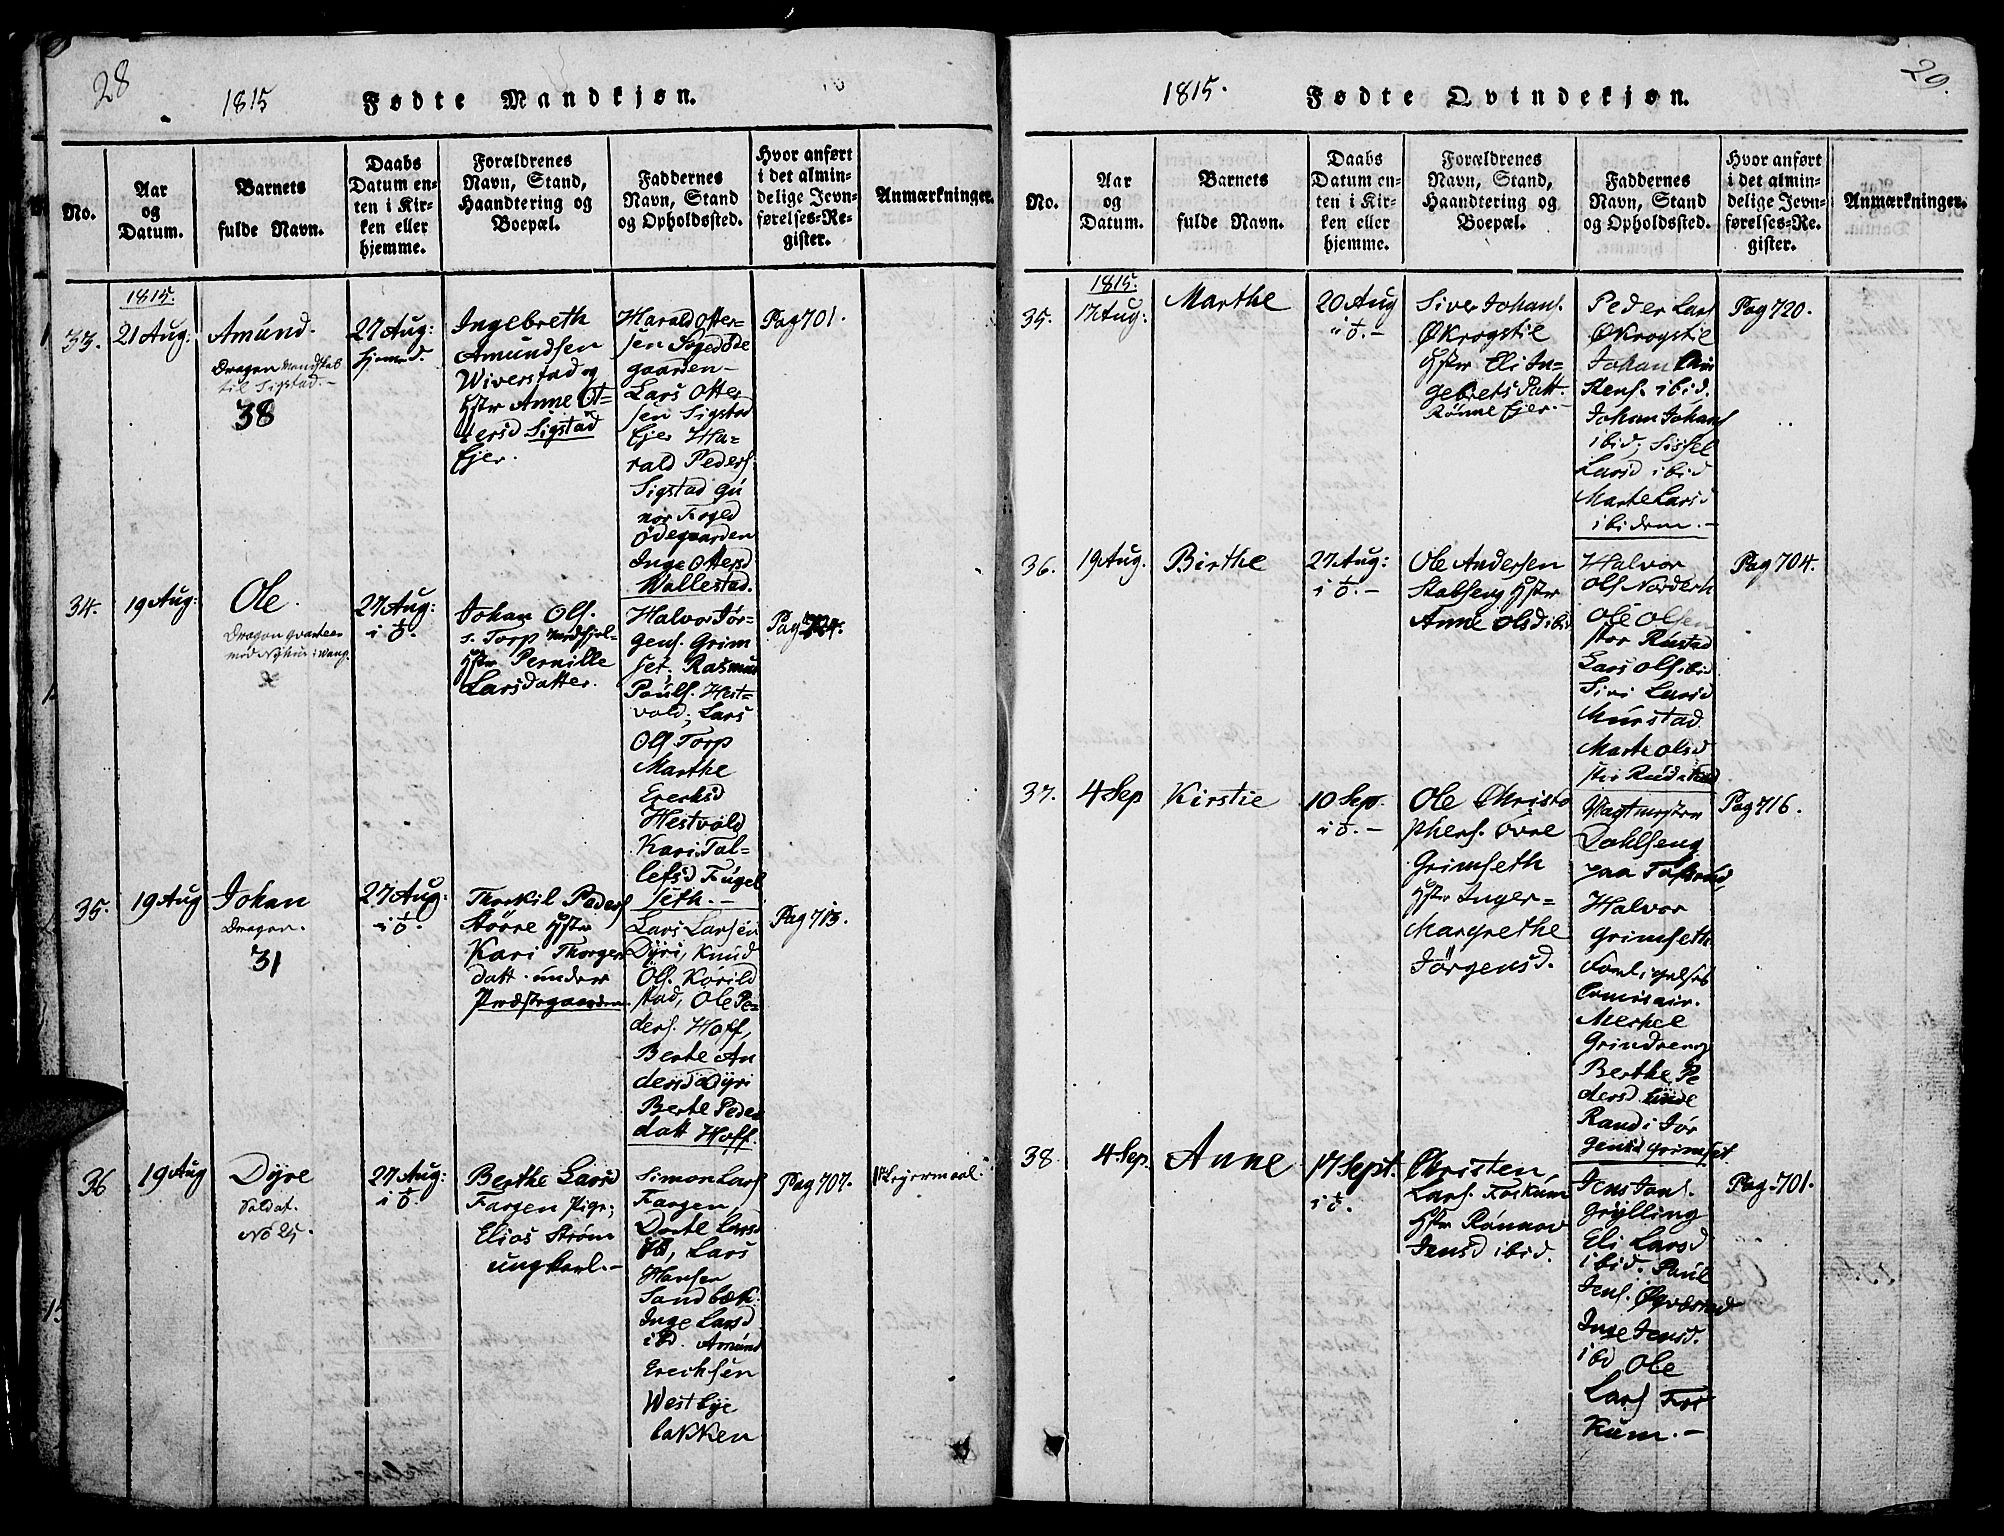 28
1815 Fødte Mandkjøn.
No.
Aar
og
Datum.
Barnets
fulde Navn.
Daabs
Datum en-
ten i Kir-
ken eller
hjemme.
Forældrenes
Navn, Stand,
Haandtering og
Boepæl.
Faddernes
Navn, Stand
og Opholdssted.
Hvor anført
i det almin-
delige Jevn-
førelses-Re-
gister.
Anmærkninger.
1815.
33.
21 Aug:
Amund.
Dragon Mandskab
til Sigstad.-
38
27 Aug:
hjemed.
Ingebreth
Amundsen
Wiverstad og
Hstr Anne Ot-
tersd Sigstad
Ejer.
Harald Otter-
sen
gaarden-
Lars Otter
sen Sigstad
Ejer Ha-
rald Peders.
Sigstad Gu
nor
Ødegaarden
Inge Ottersd
Wallestad.
Pag 701.
34.
19 Aug:
Ole.
Dragon
27 Aug:
Johan Ols.
s. Torp
Hstr Pernille
Larsdatter.
Halvor Jør-
gens. Grim
set, Rasmus
Pouls. Hest-
vold; Lars
Ols. Torp
Marthe
Erichsd
Hestvold
Kari Tal-
lefsd Fugel
seth.-
35.
19 Aug
Johan
Dragon.
31
27 Aug:
Thorkil Peders
Større Hstr
Kari Thorger
datt. under
Præstegaarden
Lars Larsen
Dyri, Knud
Ols. Korild
stad, Ole Pe-
ders. Hoff,
Berte An
dersd Dyri
Berte Peder
datt Hoff.
Pag 713.
36
19 Aug
Dyre
Soldat.
No 25.
27 Aug:
Berthe Larsd
Fargen Pige;
Elias Strøm
ungkarl.-
Simon Lars
Fargen,
Dorte Larsd
Lars
Hansen
Sandbæk.
Inge Larsd
ibd. Amund
Erichsen
Westbye
bakken
Pag 707.
Lejermaal.
29.
1815. Fødte Qvindekjøn.
No.
Aar
og
Datum.
Barnets
fulde Navn.
Daabs
Datum en-
ten i Kir-
ken eller
hjemme.
Forældrenes
Navn, Stand,
Haandtering og
Boepæl.
Faddernes
Navn, Stand
og Opholdssted.
Hvor anført
i det almin-
delige Jevn-
førelses-Re-
gister.
Anmærkninger.
1815.
35.
17 Aug:
Marthe
20 Aug
Siver Johans.
Økrogstil
Hstr Eli In-
gebrets Datt.
Rønne Ejer.-
Peder Lars
Økrogstil
Johan
stens. ibid.
Johan Johans
ibid; Sissel
Larsd ibid
Marte Larsd
ibidem.-
Pag 720.
36.
19 Aug.
Birthe
27 Aug:
Ole Andersen
Stabseng Hstr
Anne Olsd ibid
Halvor
Ols Norderh
Ole Olsen
stor Rustad
Lars Ols ibid
Siri Larsd
Murstad.
Marte Olsd
Pag 704.
37.
4 Sep
Kirstie
10 Sep.
Ole Christo
phers. Øvre
Grimseth
Hstr Inger-
Margrethe
Jørgensd.
Vagtmester
Dahlseng
paa
Halvor
Grimseth
Forligelses
Comisair.
Grindreng
Berthe Pe
dersd Linde
Randi Jør
gensd Grimset.
Pag 716.
38
4 Sep.
Anne
17 Sept.
Christen
Lars. Foskum
Hstr Rønnov
Jensd ibid.
Jens Jons.
Grylling
Eli Larsd
ibid. Paul
Jens.
Inge Jensd.
ibd Ole
Lars Fos
kum.-
Pag 701.